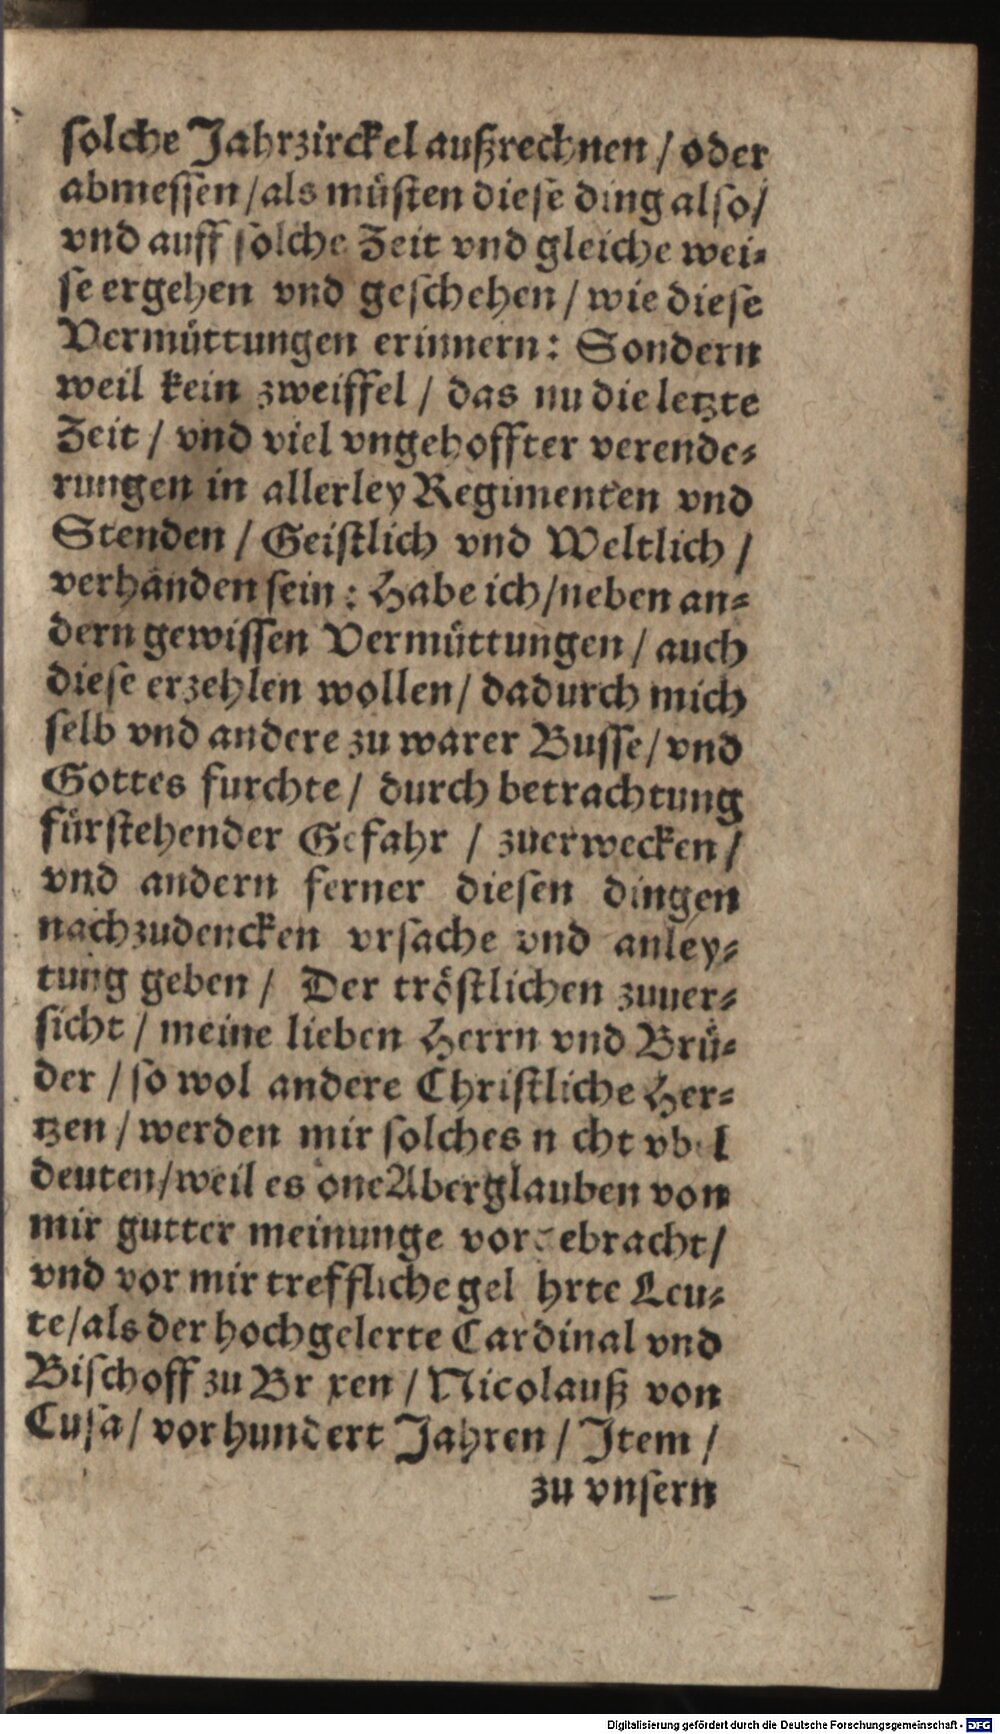 solche Jahrzirckel außrechnen / oder
abmessen / als müsten diese ding also /
vnd auff solche Zeit vnd gleiche wei-
se ergehen vnd geschehen / wie diese
Vermüttungen erinnern: Sondern
weil kein zweiffel / das nu die letzte
Zeit / vnd viel vngehoffter verende-
rungen in allerley Regimenten vnd
Stenden / Geistlich vnd Weltlich /
verhanden sein: Habe ich / neben an-
dern gewissen Vermüttungen / auch
diese erzehlen wollen / dadurch mich
selb vnd andere zu warer Busse / vnd
Gottes furchte / durch betrachtung
fürstehender Gefahr / zuerwecken /
vnd andern ferner diesen dingen
nachzudencken vrsache vnd anley-
tung geben / Der tröstlichen zuuer-
sicht / meine lieben Herrn vnd Brü-
der / so wol andere Christliche Her-
tzen / werden mir solches n cht vb l
deuten / weil es one Aberglauben von
mir gutter meinunge vorgebracht /
vnd vor mir treffliche gel hrte Leu-
te / als der hochgelerte Cardinal vnd
Bischoff zu Br xen / Nicolauß von
Cusa / vor hundert Jahren / Item /
zu vnsern
Digitalisierung gefördert durch die Deutsche Forschungsgemeinschaft - DFG